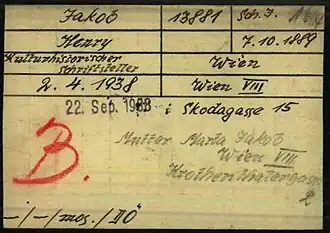 Jakob 13881 Sch. J.
Henry 7.10.1889
Kulturhistorischer
Schriftsteller Wien
2. 4. 1938 Wien VIII
22. Sep. 1938 i Skodagasse 15
B.
Mutter Maria Jakob
Wien VIII
2
-/-/mos./DÖ